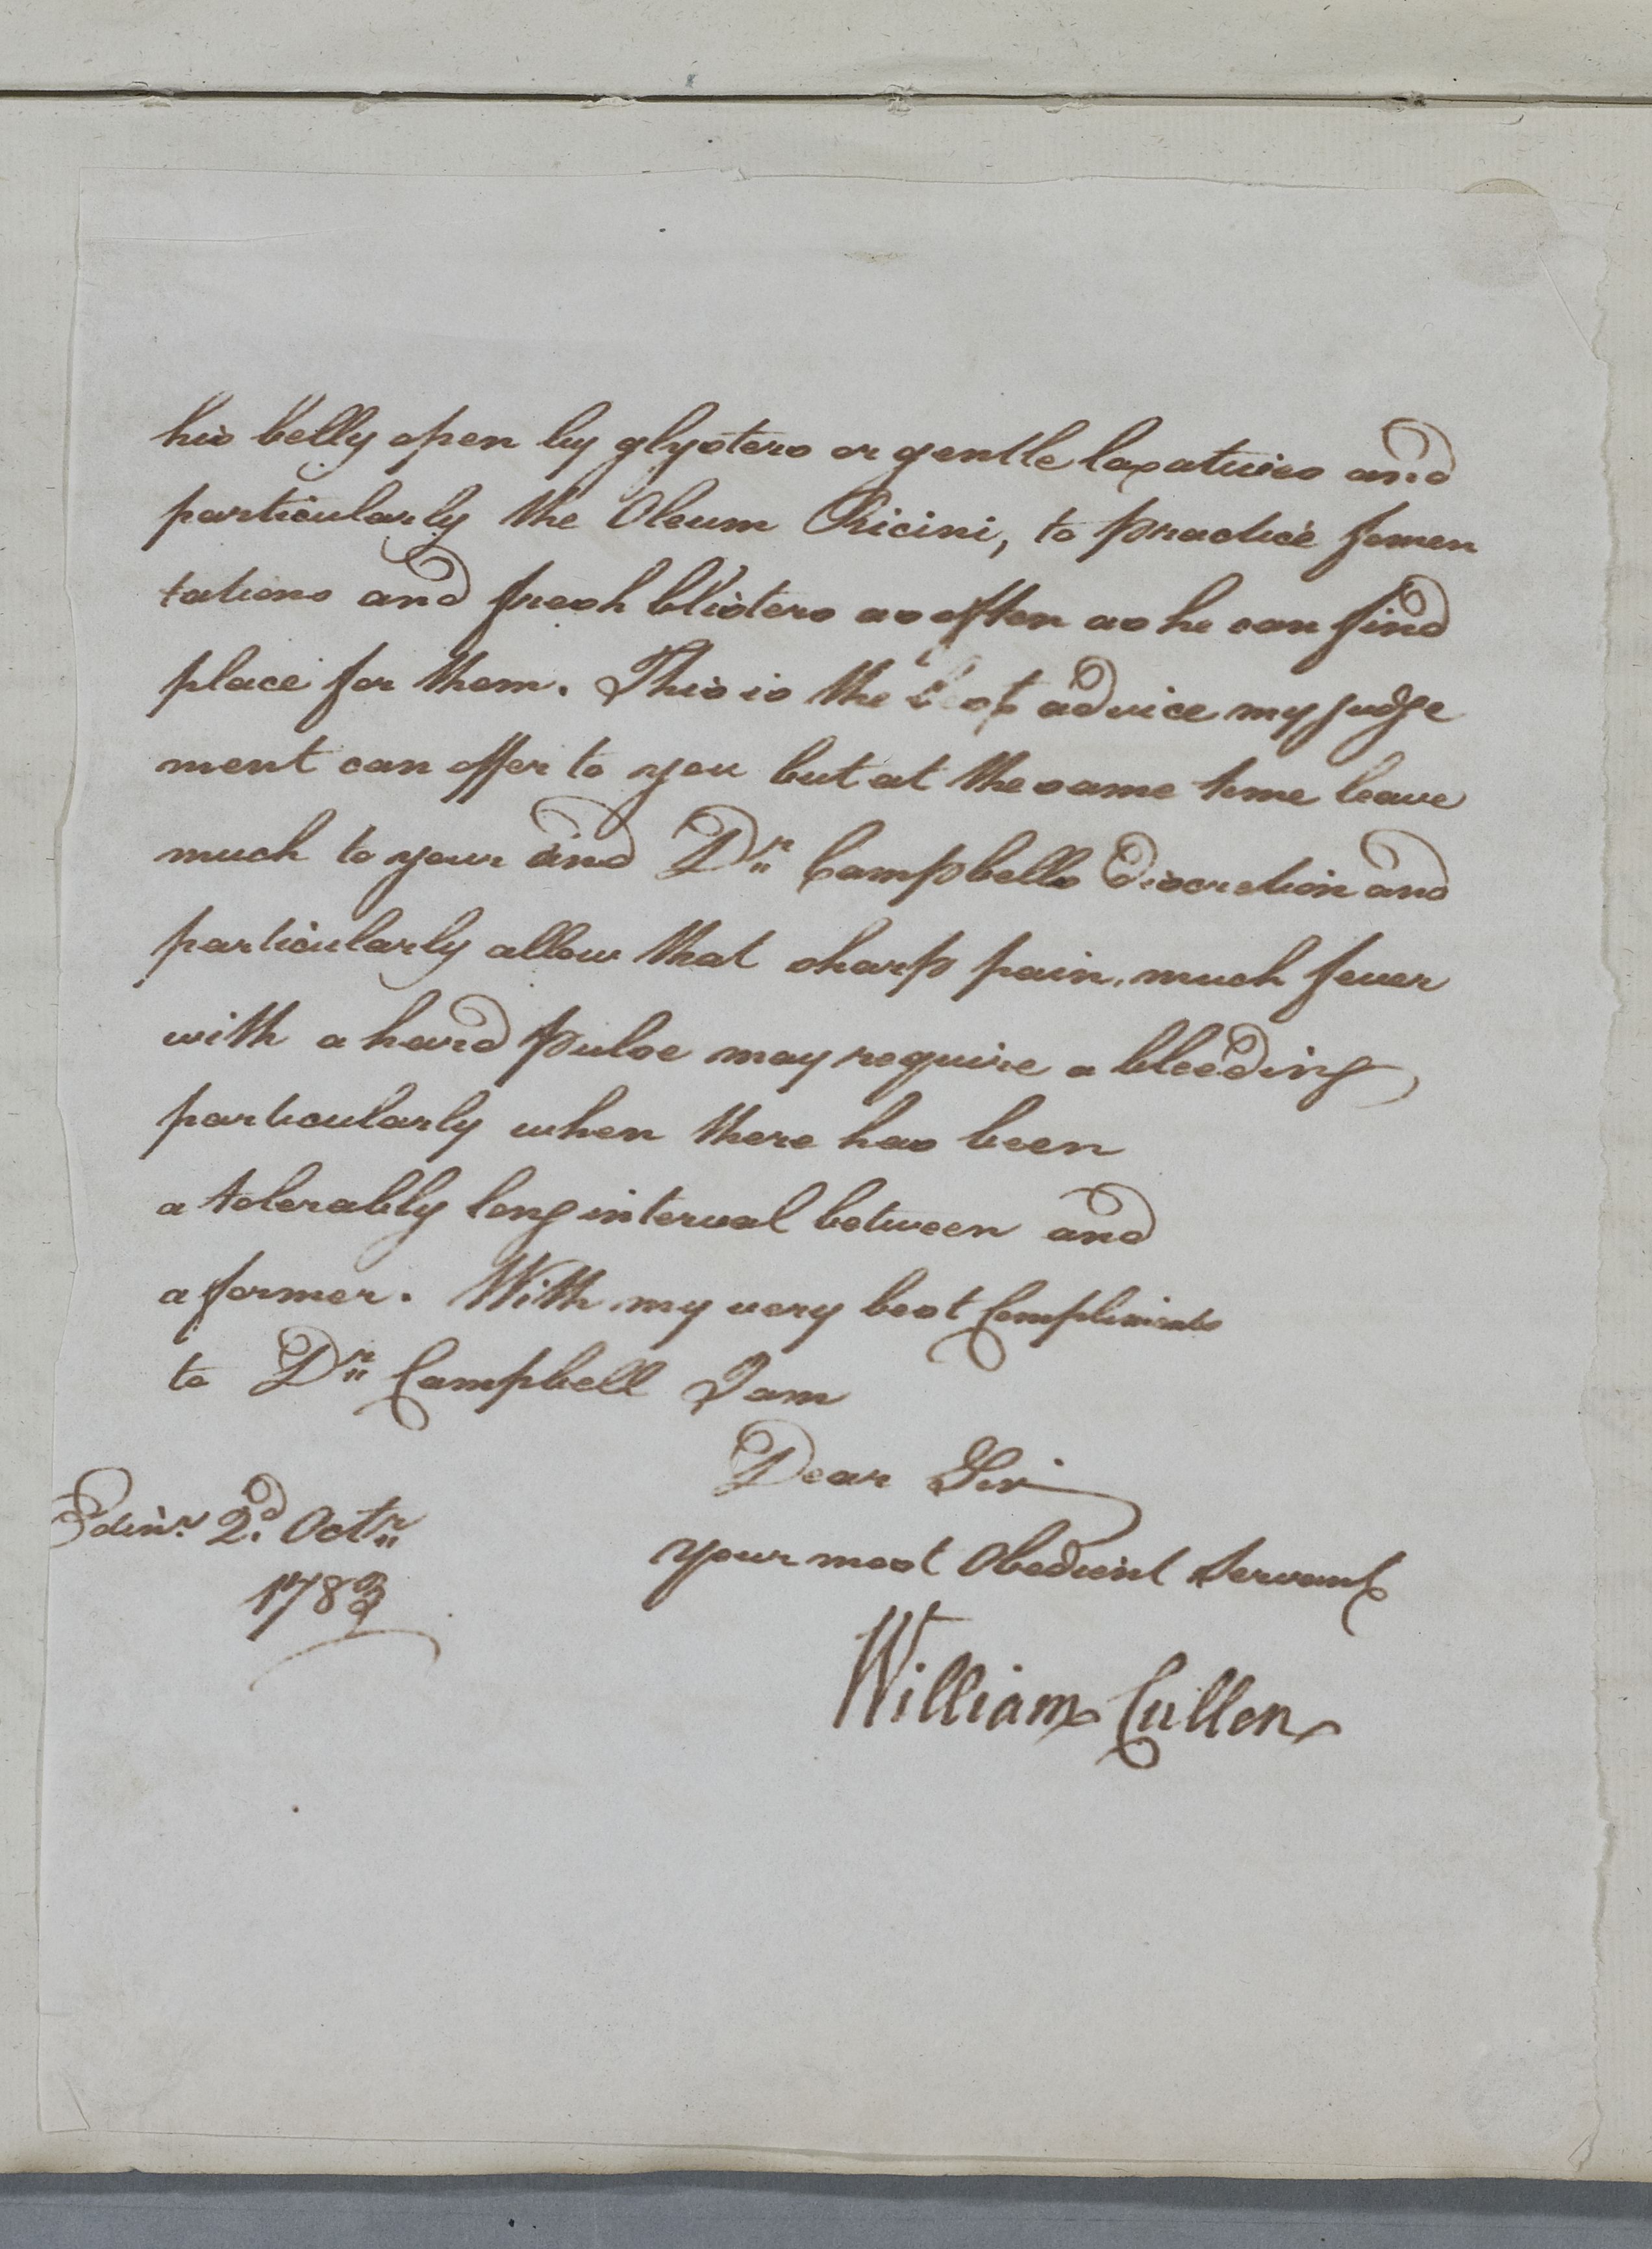 his belly open by glysters or gentle laxatives and
particularly the Oleum Ricini, to practice fomen
tations and fresh blisters as often as he can find
place for them. This is the best advice my judge
ment can offer to you but at the same time leave
much to your and Dr. Campbells Discretion and
particularly allow that sharp pain, much fever
with a hard pulse may require a bleeding
particularly when there has been
a tolerably long interval between and
a former. With my very best Compliments
to Dr. Campbell I am
Dear Sir
your most Obedient Servant
Edinr. 2d. Octr.
1782
William Cullen